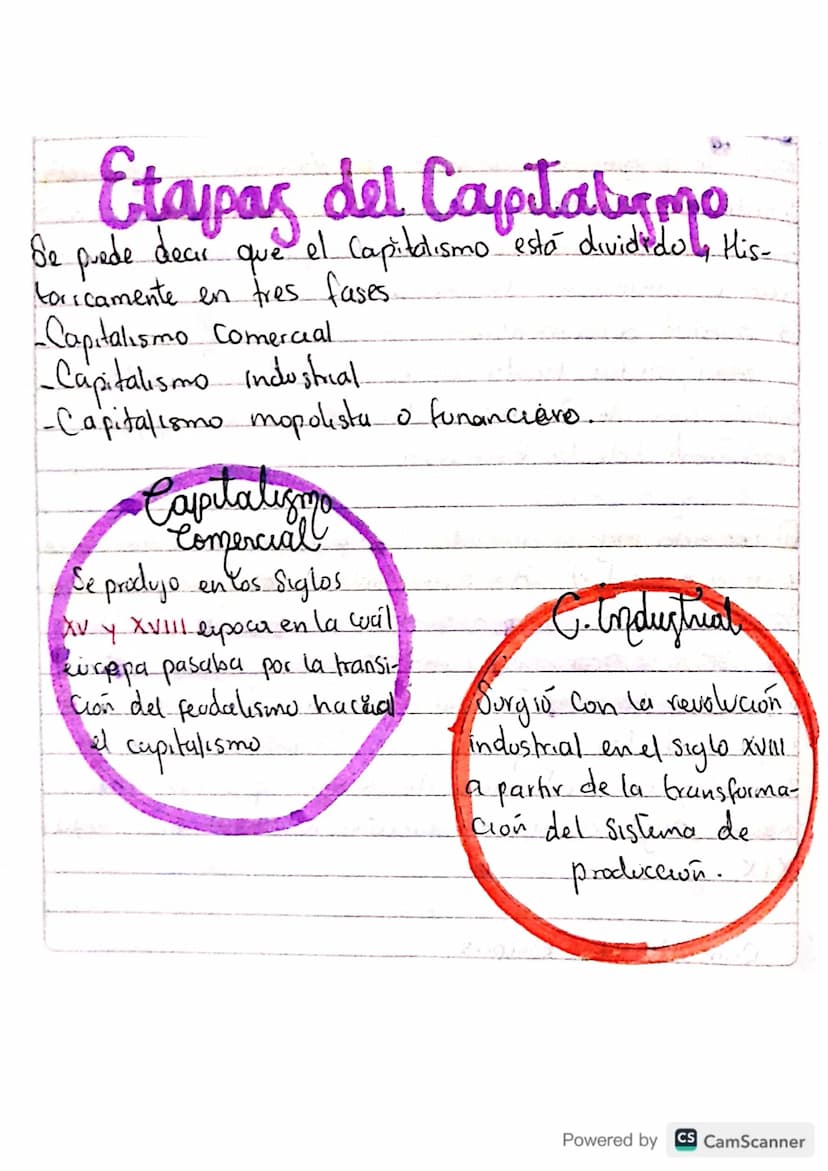 Etapas del Capitalismo
Se puede decir que el Capitalismo está dividido, His-
toricamente en tres fases
-Capitalismo Comercial
-Capitalismo Industrial
-Capitalismo mopolista o funanciero.
Capitalismo
Comercial
Se produjo en los Siglos
XV y XVIII epoca en la cuál
europa pasaba por la transi-
ción del feudalismo hacia
el capitalismo
C. Industrial
Surgió Con la revolución
industrial en el siglo XVIII
a partir de la transforma-
ción del Sistema de
producción.
Powered by CS CamScanner